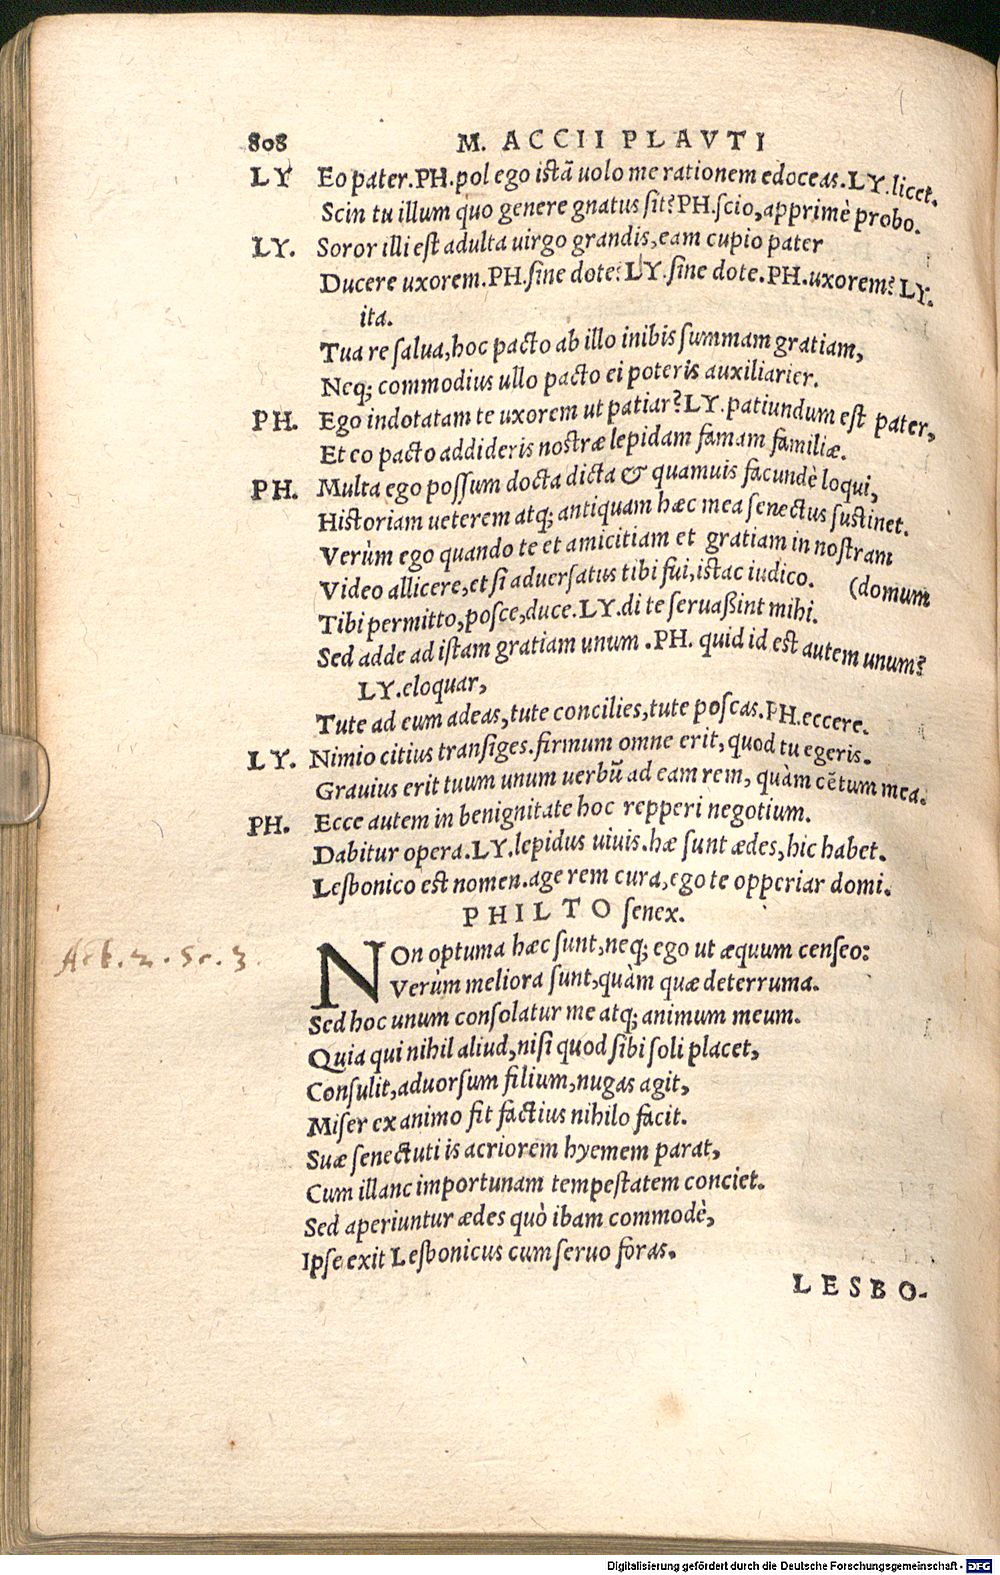 808 M. ACCII PLAVTI
LY Eo pater.PH.pol ego istā uolo me rationem edoceas.LY.licet.
Scin tu illum quo genere gnatus sit?PH.scio,apprimè probo.
LY. Soror illi est adulta uirgo grandis,eam cupio pater
Ducere uxorem.PH.sine dote?LY.sine dote.PH.uxorem?LY.
ita.
Tua re salua,hoc pacto ab illo inibis summam gratiam,
Neq; commodius ullo pacto ei poteris auxiliarier.
PH. Ego indotatam te uxorem ut patiar?LY.patiundum est pater,
Et eo pacto addideris nostræ lepidam famam familiæ.
PH. Multa ego possum docta dicta & quamuis facundè loqui,
Historiam ueterem atq; antiquam hæc mea senectus sustinet.
Verùm ego quando te et amicitiam et gratiam in nostram
Video allicere,et si aduersatus tibi fui,istac iudico. (domum
Tibi permitto,posce,duce.LY.di te seruaßint mihi.
Sed adde ad istam gratiam unum.PH. quid id est autem unum?
LY.eloquar,
Tute ad eum adeas,tute concilies,tute poscas.PH.eccere.
LY. Nimio citius transiges.firmum omne erit,quod tu egeris.
Grauius erit tuum unum uerbū ad eam rem, quàm cētum mea.
PH. Ecce autem in benignitate hoc repperi negotium.
Dabitur opera.LY.lepidus uiuis.hæ sunt ædes,hic habet.
Lesbonico est nomen.age rem cura,ego te opperiar domi.
PHILTO senex.
Act. 2. Sc. 3.
NOn optuma hæc sunt,neq; ego ut æquum censeo:
Verùm meliora sunt,quàm quæ deterruma.
Sed hoc unum consolatur me atq; animum meum.
Quia qui nihil aliud,nisi quod sibi soli placet,
Consulit,aduorsum filium,nugas agit,
Miser ex animo fit factius nihilo facit.
Suæ senectuti is acriorem hyemem parat,
Cum illanc importunam tempestatem conciet.
Sed aperiuntur ædes quò ibam commodè,
Ipse exit Lesbonicus cum seruo foras.
LESBO-
Digitalisierung gefördert durch die Deutsche Forschungsgemeinschaft - DFG